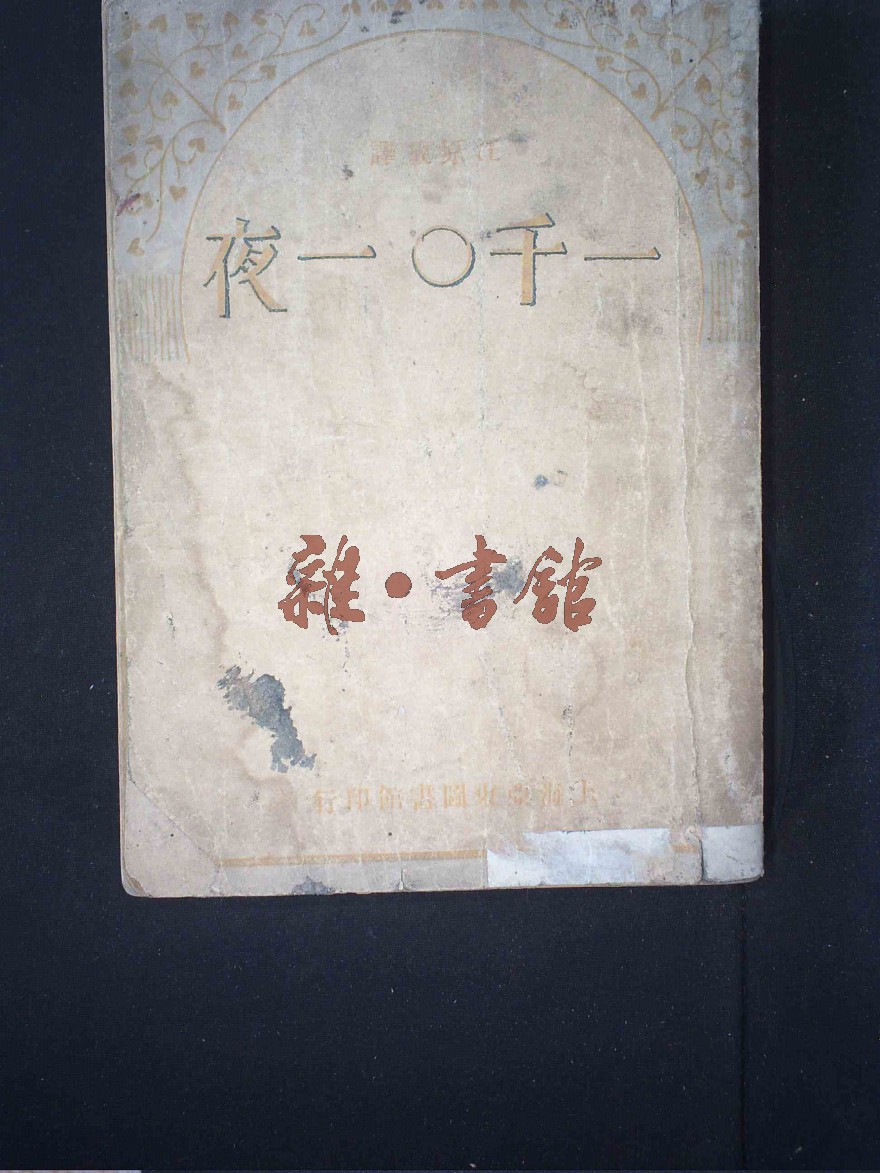 汪原放譯
一千〇一夜
雜·書館
上海亞東圖書館印行